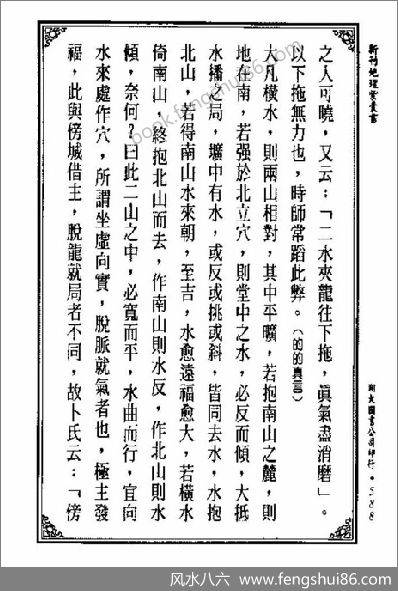 新刊地理紫囊書
圖書公司印行・588
之人可曉，又云：「二水夾龍往下拖，眞氣盡消磨」。
以下拖無力也，時師常蹈此弊。（的的真言）
大凡橫水，則兩山相對，其中平曠，若抱南山之麓，則
地在南，若强於北立穴，則堂中之水，必反而傾，大抵
水播之局，壙中有水，或反或挑或斜，皆同去水，水抱
北山，若得南山水來朝，至吉，水愈遠福愈大，若橫水
倚南山，終抱北山而去，作南山則水反，作北山則水
傾，奈何？曰此二山之中，必寬而平，水曲而行，宜向
水來處作穴，所謂坐虛向實，脫脈就氣者也，極主發
福，此與傍城借主，脫龍就局者不同，故卜氏云：「傍
book.fengshui86.com
风水八六－www.fengshui86.com